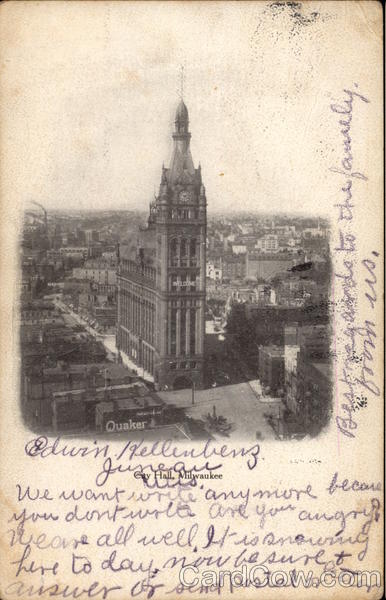 WELCOME
Quaker
Edwin Kellenbenz
Juneau
City Hall, Milwaukee
Wis.
We want write anymore because
you dont write. Are you angry?
We are all well. It is snowing
here to day, now be sure +
answer or send
Best regards to the family
from us.
CardCow.com